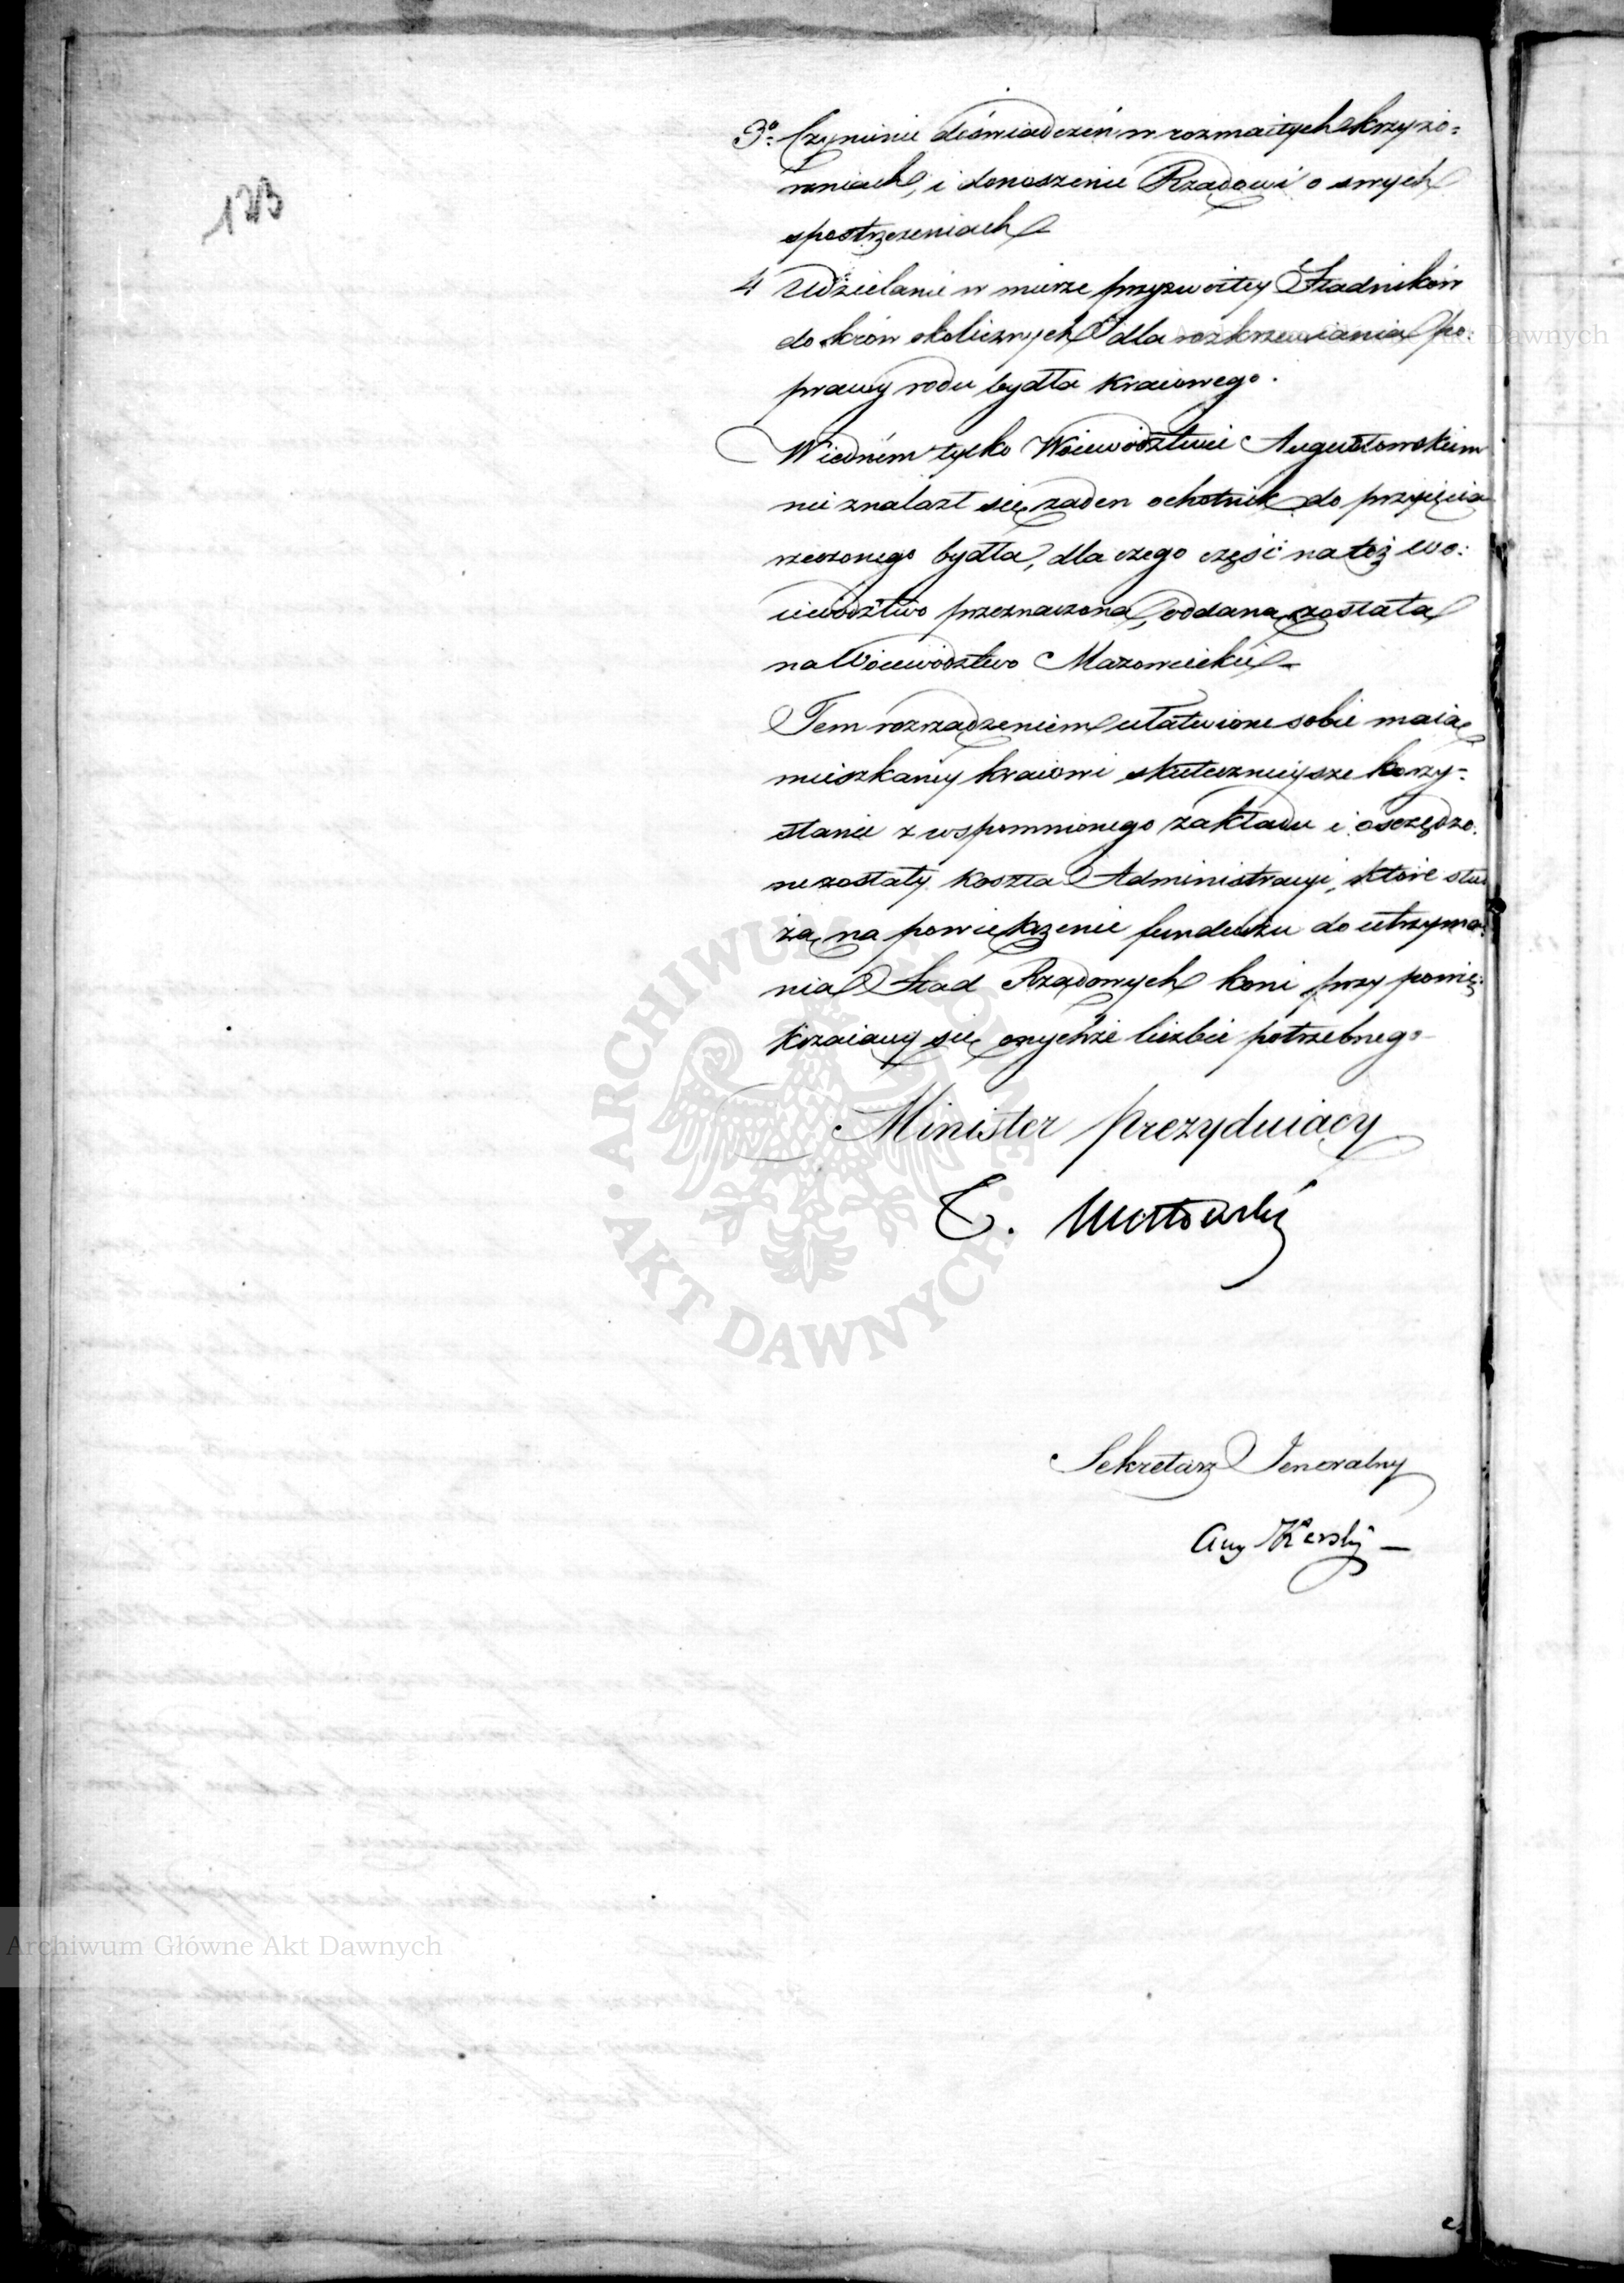 3º Czynienie doświadczeń w rozmaitych skrzyżo:
waniach, i donoszenie Rządowi o swych
spostrzeżeniach
4 Udzielanie w mierze przyzwoitey Stadników
do krów okolicznych dla rozkrzewiania po:
prawy rodu bydła kraiowego.
W iedném tylko Woiewództwie Augustowskiem
nie znalazł się żaden ochotnik do przyięcia
rzeczonego bydła, dla czego część na toż wo:
iewództwo przeznaczona, oddana została
na Woiewództwo Mazowieckie
Tem rozrządzeniem ułatwione sobie maią
mieszkańcy kraiowi skutecznieysze korzy-
stanie z wspomnionego zakładu i oszczędzo:
ne zostały koszta Administracyi, które słu
żą na powiększenie funduszu do utrzyma:
nia Stad Rządowych koni przy powię:
kszaiącey się onychże liczbie potrzebnego
Minister Prezyduiący
T. Mostowski
Sekretarz Jeneralny
Aug Karski
Archiwum Główne Akt Dawnych
ARCHIWUM GŁÓWNE AKT DAWNYCH